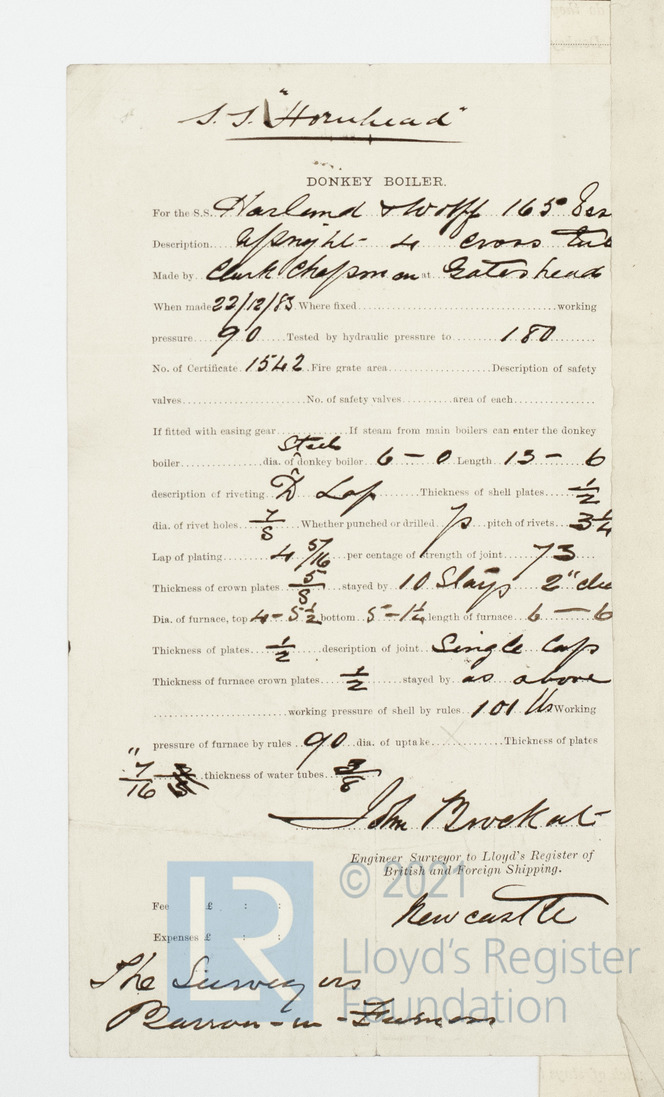 S.S. "Hornhead"
DONKEY BOILER.
For the S.S. Harland & Wolff 165
Description Upright - 4 cross tub
Made by Clark Chapman at Gateshead
When made 22/12/83 Where fixed working
pressure 90 Tested by hydraulic pressure to 180
No. of Certificate 1542 Fire grate area Description of safety
valves No. of safety valves area of each
If fitted with easing gear If steam from main boilers can enter the donkey
Steel
boiler dia. of ^ donkey boiler 6 - 0 Length 13 - 6
description of riveting D Lap Thickness of shell plates 1/2
dia. of rivet holes 7/8 Whether punched or drilled p pitch of rivets 3 1/4
Lap of plating 4 5/16 per centage of strength of joint 73
Thickness of crown plates 5/8 stayed by 10 Stays 2" dia
Dia. of furnace, top 4 - 5 1/2 bottom 5 - 1 1/2 length of furnace 6 - 6
Thickness of plates 1/2 description of joint Single Laps
Thickness of furnace crown plates 1/2 stayed by as above
working pressure of shell by rules 101 lbs Working
pressure of furnace by rules 90 dia. of uptake Thickness of plates
7/16" thickness of water tubes 3/8
John Brockat
Engineer Surveyor to Lloyd's Register of
British and Foreign Shipping.
© 2021
Fee £ : :
Newcastle
Expenses £ : :
LR
Lloyd's Register
Foundation
The Surveyors
Barrow-in-Furness